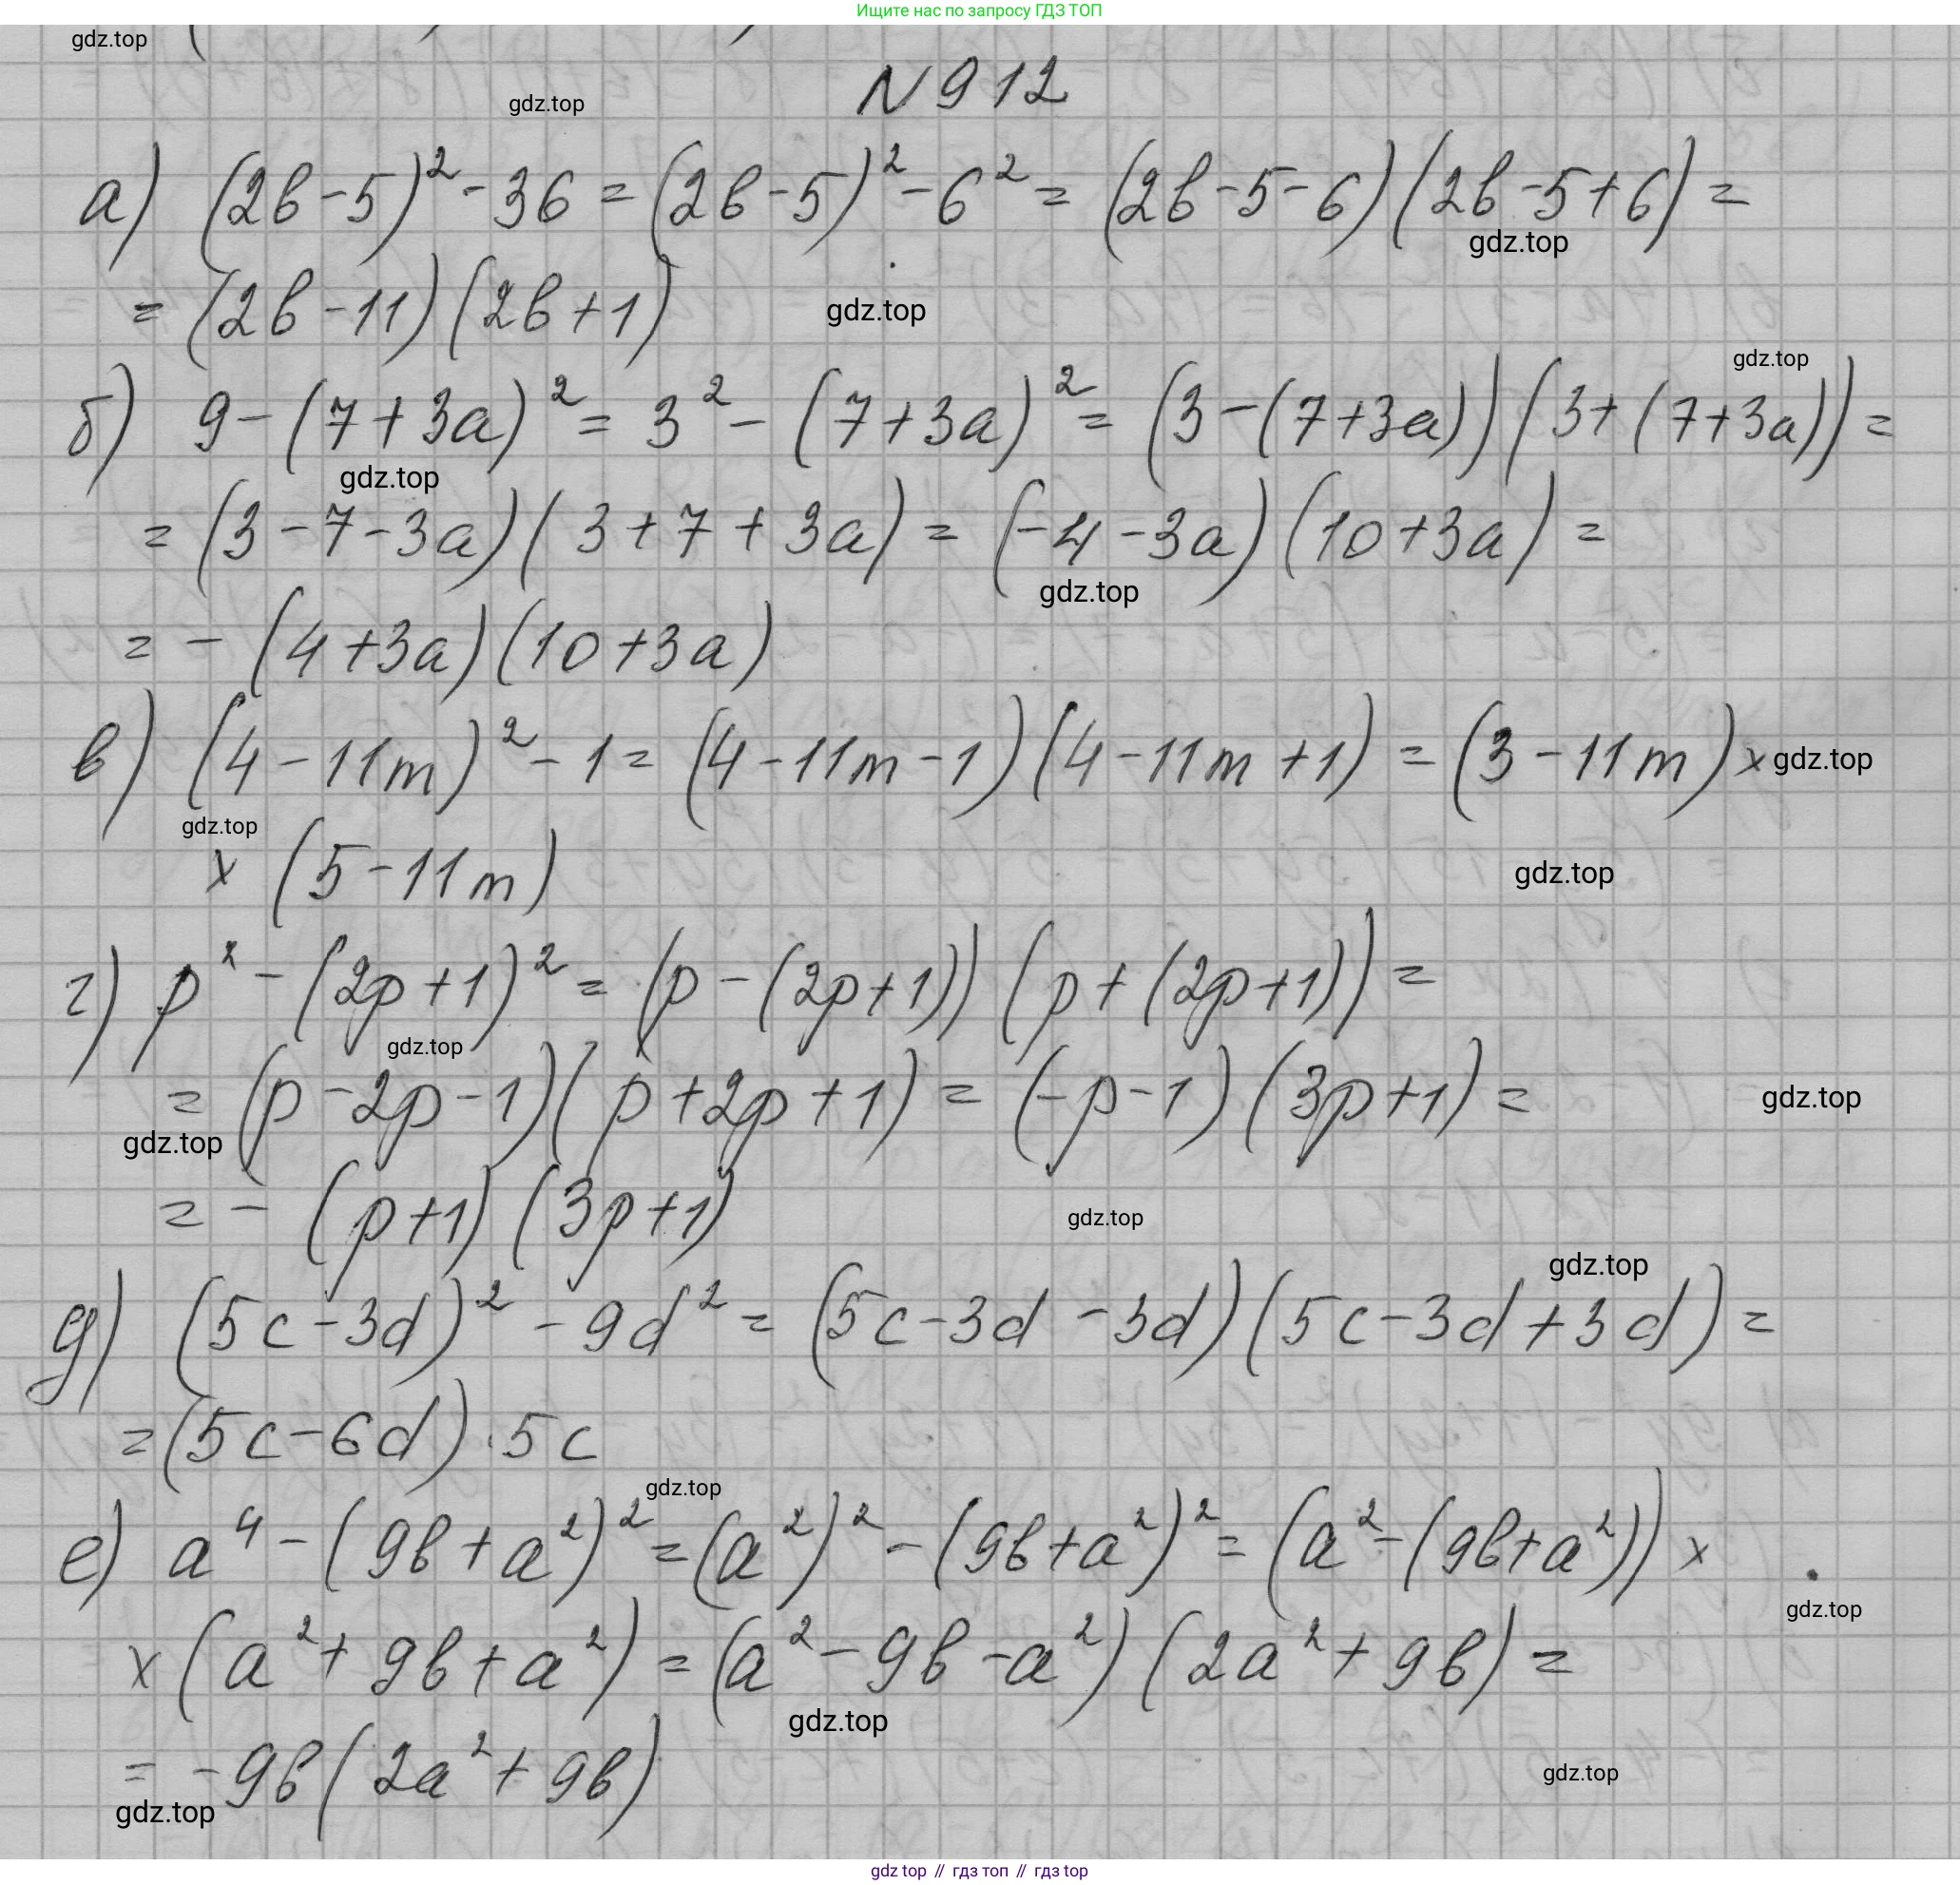 Ищите нас по запросу ГДЗ ТОП
gdz.top
N 912
gdz.top
а) (2b-5)² - 36 = (2b-5)² - 6² = (2b-5-6)(2b-5+6) =
gdz.top
= (2b-11)(2b+1)
gdz.top
gdz.top
б) 9-(7+3a)² = 3² - (7+3a)² = (3-(7+3a))(3+(7+3a)) =
gdz.top
= (3-7-3a)(3+7+3a) = (-4-3a)(10+3a) =
gdz.top
= -(4+3a)(10+3a)
в) (4-11m)² - 1 = (4-11m-1)(4-11m+1) = (3-11m) × gdz.top
gdz.top
× (5-11m)
gdz.top
г) p² - (2p+1)² = (p-(2p+1))(p+(2p+1)) =
gdz.top
= (p-2p-1)(p+2p+1) = (-p-1)(3p+1) =
gdz.top
gdz.top
= -(p+1)(3p+1)
gdz.top
gdz.top
д) (5c-3d)² - 9d² = (5c-3d-3d)(5c-3d+3d) =
= (5c-6d)·5c
gdz.top
е) a⁴ - (9b+a²)² = (a²)² - (9b+a²)² = (a²-(9b+a²)) ×
gdz.top
× (a²+9b+a²) = (a²-9b-a²)(2a²+9b) =
gdz.top
= -9b(2a²+9b)
gdz.top
gdz.top
gdz top // гдз топ // гдз top